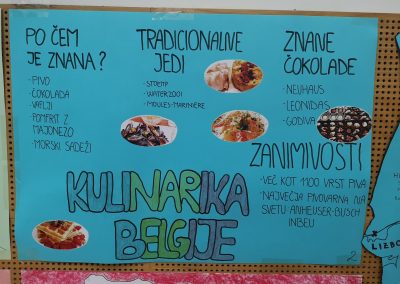 PO ČEM
JE ZNANA?
- PIVO
- ČOKOLADA
- VAFLJI
- POMFRIT Z
MAJONEZO
- MORSKI SADEŽI
TRADICIONALNE
JEDI
- STOEMP
- WATERZOOI
- MOULES-MARINIÈRE
ZNANE
ČOKOLADE
- NEUHAUS
- LEONIDAS
- GODIVA
ZANIMIVOSTI
- VEČ KOT 1100 VRST PIVA
- NAJVEČJA PIVOVARNA NA
SVETU-ANHEUSER-BUSCH
INBEU
KULINARIKA
BELGIJE
2